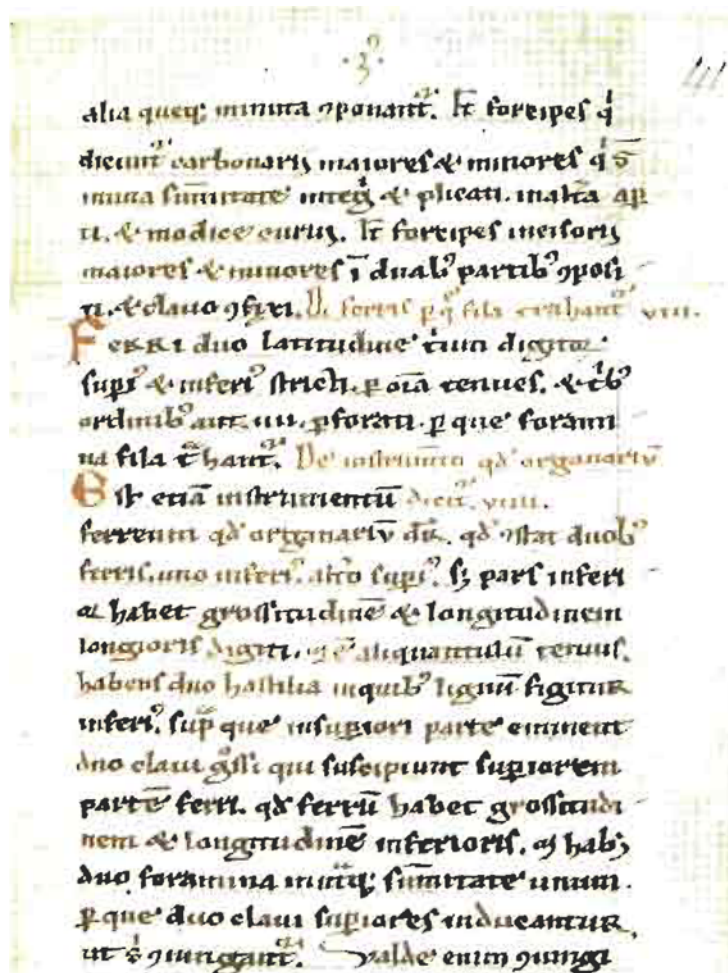 ·3·
41
alia queq; minuta ꝯponant᷑. Itē forcipes q̇
dicunt᷑ carbonarij maiores & minores q̇ s̄
in una sūmitate integͥ & plicati. in alt͛a aꝑ
ti. & modice curui. Itē forcipes incisorij
maiores & minores ī duabꝰ partibꝰ ꝯposi
ti. & clauo ꝯfixi. De ferris ꝑ qͤ fila trahant᷑ viii.
FERRI duo latitudine t̍ium digitoꝝ
supiꝰ & inferiꝰ stricti. ꝑ oīa tenues. & t̍bꝰ
ordinibꝰ aut. iiii. ꝑforati. ꝑ que forami
na fila t͛hant᷑. De instrumto qd̄ organariū
Est etiā instrumentū dicit᷑. viiii.
ferreum qd̄ organariū dr̄. qd̄ ꝯstat duobꝰ
ferris. uno inferiꝰ. alt̍o supiꝰ. Sꝫ pars inferi
or habet grossitudinē & longitudinem
longioris digiti. & ē aliquantulū tenuis.
habens duo hastilia in quibꝰ lignū figitur
inferiꝰ. supͣ que in suꝑiori parte eminent
duo claui gͦssi qui suscipiunt suꝑiorem
partē ferri. qd̄ ferrū habet grossitudi
nem & longitudinē inferioris. & habꝫ
duo foramina in utͣq; sūmitate unum.
ꝑ que duo claui suꝑiores inducantur,
ut s̍ ꝯiungant᷑. Valde enim ꝯiungi